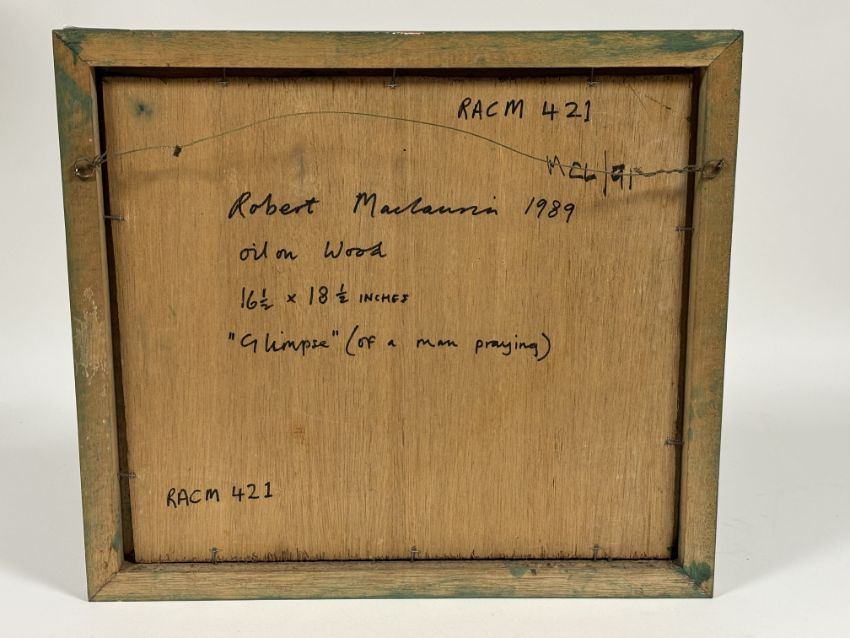 RACM 421
MCL/91
Robert Maclaurin 1989
oil on Wood
16½ x 18½ INCHES
"Glimpse" (of a man praying)
RACM 421